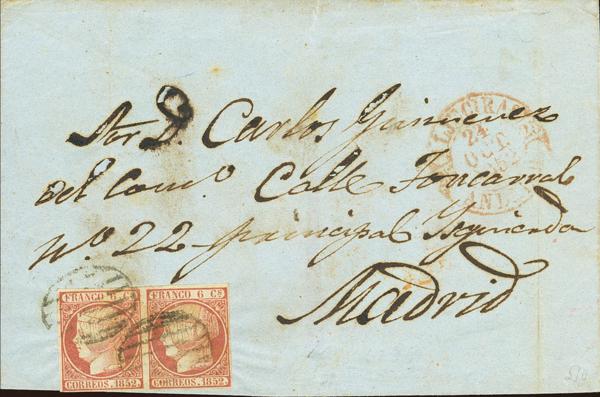 Sor D. Carlos Gimenez
del Com.º Calle Foncarral
nº 22 principal Izquierda
Madrid
ALGECIRAS
24
OCT
52
AND
FRANCO 6 Cs
CORREOS. 1852.
FRANCO 6 Cs
CORREOS. 1852.